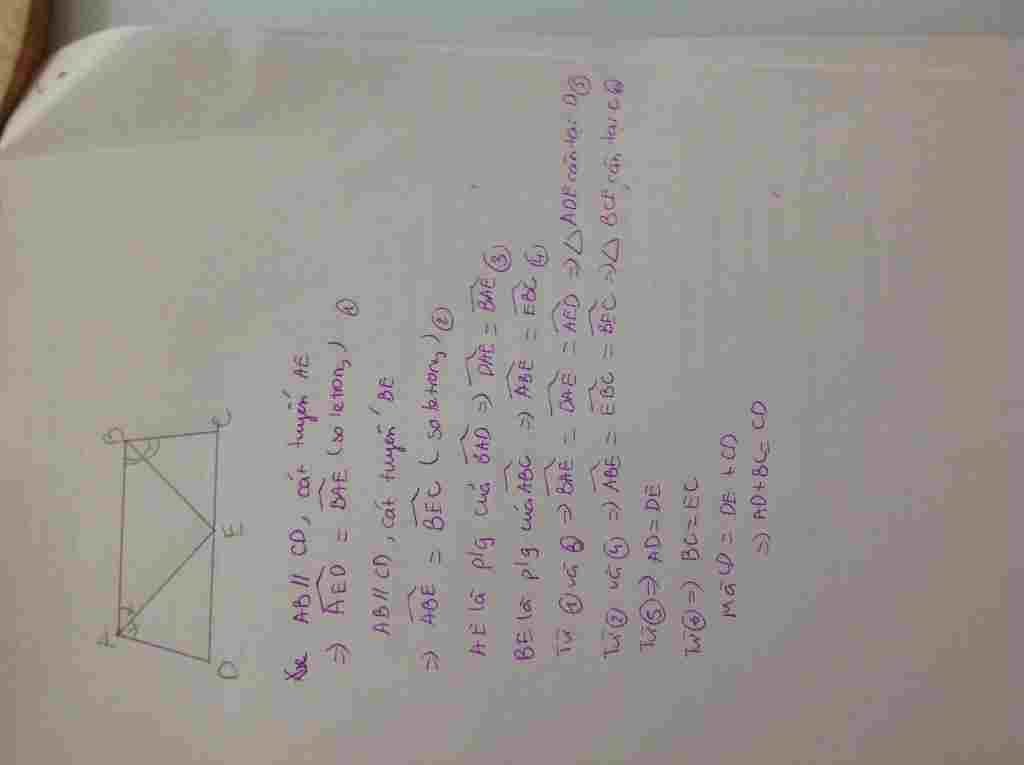 A B
D E C
Xét AB // CD, cát tuyến AE
=> AED = BAE (so le trong) ①
AB // CD, cát tuyến BE
=> ABE = BEC (so le trong) ②
AE là p/g của BAD => DAE = BAE ③
BE là p/g của ABC => ABE = EBC ④
Từ ① và ③ => BAE = DAE = AED => △ ADE cân tại D ⑤
Từ ② và ④ => ABE = EBC = BEC => △ BCE cân tại C ⑥
Từ ⑤ => AD = DE
Từ ⑥ => BC = EC
Mà CD = DE + CD
=> AD + BC = CD